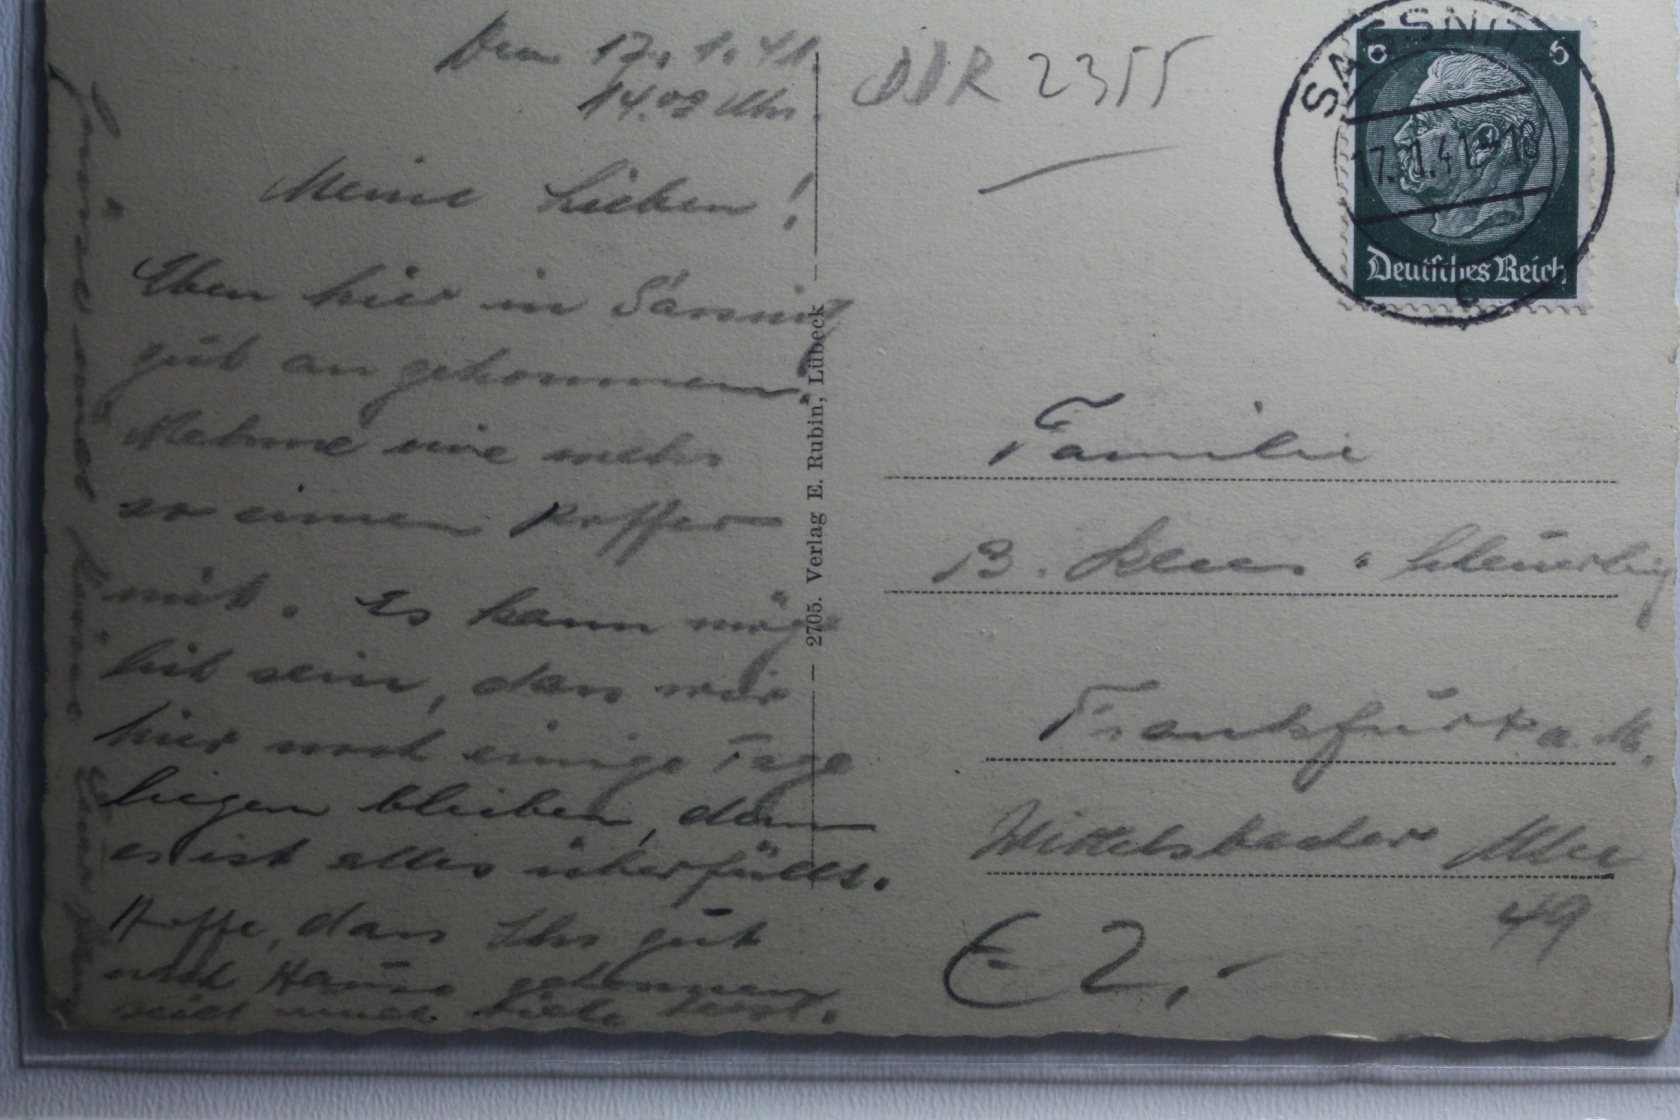 Den 17. 1. 41.
14.00 Uhr.
Meine Lieben!
Eben hier in Sassnitz
gut angekommen.
Nehme nie mehr
so einen Koffer
mit. Es kann mög-
lich sein, dass wir
hier noch einige Tage
liegen bleiben, denn
es ist alles überfüllt.
Hoffe, dass Ihr gut
nach Hause gekommen
seid
DDR 2355
SASSNITZ
17.1.41-18
c
6 6
Deutsches Reich
2705. Verlag E. Rubin, Lübeck
Familie
B.
Frankfurt a. M.
Wittelsbacher Allee
49
€ 2,-